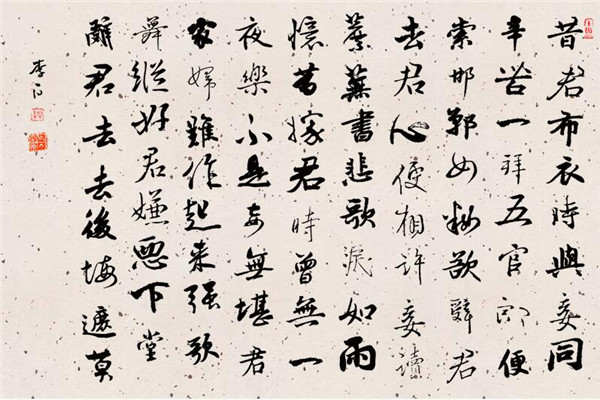 昔君布衣時與妾同
辛苦一拜五官郎便
索邯鄲女妾欲辭君
去君心便相許妾讀
蘼蕪書悲歌淚如雨
憶昔嫁君時曾無一
夜樂不是妾無堪君
家婦難作起來強歌
舞縱好君嫌惡下堂
辭君去去後悔遮莫
李白